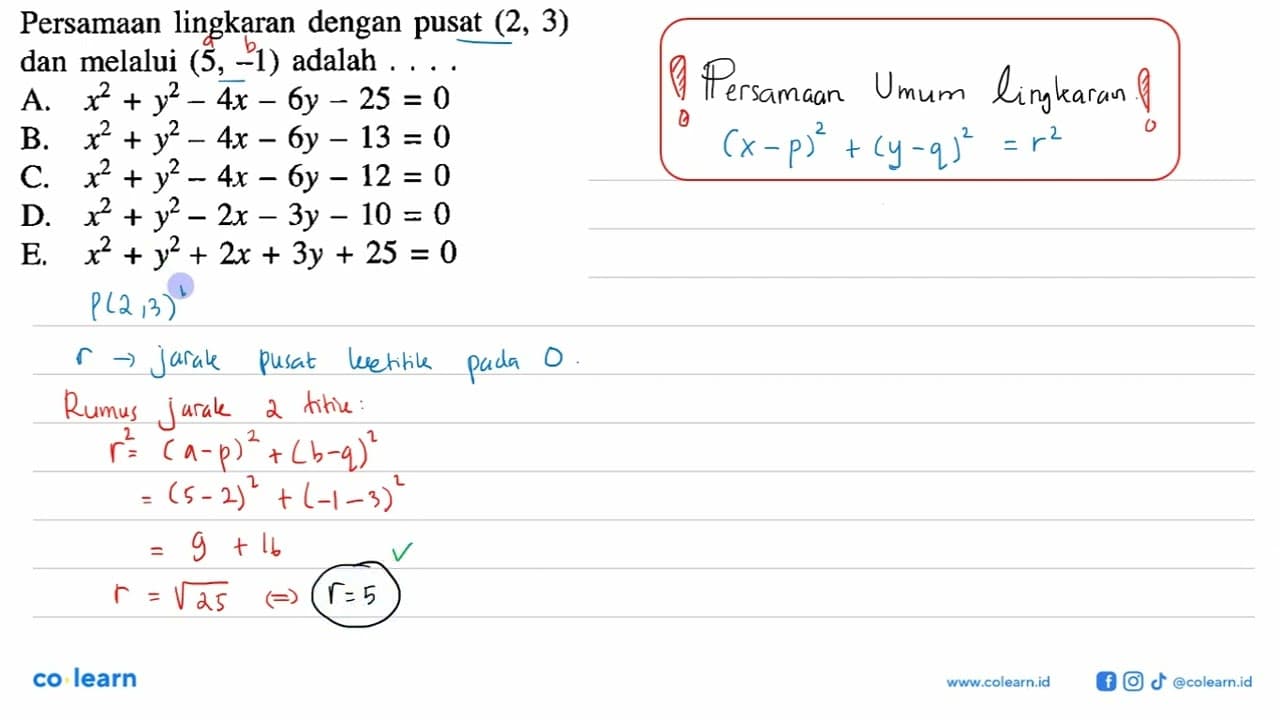 Persamaan lingkaran dengan pusat (2, 3)
a b
dan melalui (5, −1) adalah . . . .
A. x² + y² − 4x − 6y − 25 = 0
B. x² + y² − 4x − 6y − 13 = 0
C. x² + y² − 4x − 6y − 12 = 0
D. x² + y² − 2x − 3y − 10 = 0
E. x² + y² + 2x + 3y + 25 = 0
Persamaan Umum lingkaran
(x-p)² + (y-q)² = r²
P(2,3)
r → jarak pusat ketitik pada O.
Rumus jarak 2 titik:
r² = (a-p)² + (b-q)²
= (5-2)² + (-1-3)²
= 9 + 16
r = √25 (=) r = 5
co learn
www.colearn.id
@colearn.id